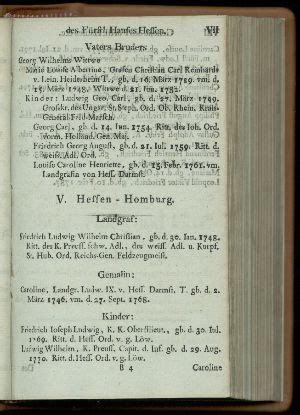 des Fürstl. Hauses Hessen. VII
Vaters Bruders
Georg Wilhelms Wittwe
Marie Louise Albertine, Gräfin Christian Carl Reinhards
v. Lein. Heidesheim T., gb. d. 16. März 1729. vm. d.
15. März 1748. Wittwe d. 21. Jun. 1782.
Kinder: Ludwig Geo. Carl, gb. d. 27. März 1749.
Groskr. des Ungar. St. Steph. Ord. Ob. Rhein. Kreis-
General Feld-Marsch.
Georg Carl, gb. d. 14. Jun. 1754. Ritt. des Joh. Ord.
vorm. Holländ. Gen. Maj.
Friedrich Georg August, gb. d. 21. Jul. 1759. Ritt. d.
weiss. Adl. Ord.
Louise Caroline Henriette, gb. d. 15. Febr. 1761. vm.
Landgräfin von Hess. Darmst.
V. Hessen - Homburg.
Landgraf:
Friedrich Ludwig Wilhelm Christian, gb. d. 30. Jan. 1748.
Ritt. des K. Preuss. schw. Adl., des weiss. Adl. u. Kurpf.
St. Hub. Ord. Reichs-Gen. Feldzeugmeist.
Gemalin:
Caroline, Landgr. Ludw. IX. v. Hess. Darmst. T. gb. d. 2.
März 1746. vm. d. 27. Sept. 1768.
Kinder:
Friedrich Joseph Ludwig, K. K. Oberstlieut., gb. d. 30. Jul.
1769. Ritt. d. Hess. Ord. v. g. Löw.
Ludwig Wilhelm, K. Preuss. Capit. d. Inf. gb. d. 29. Aug.
1770. Ritt. d. Hess. Ord. v. g. Löw.
B 4 Caroline